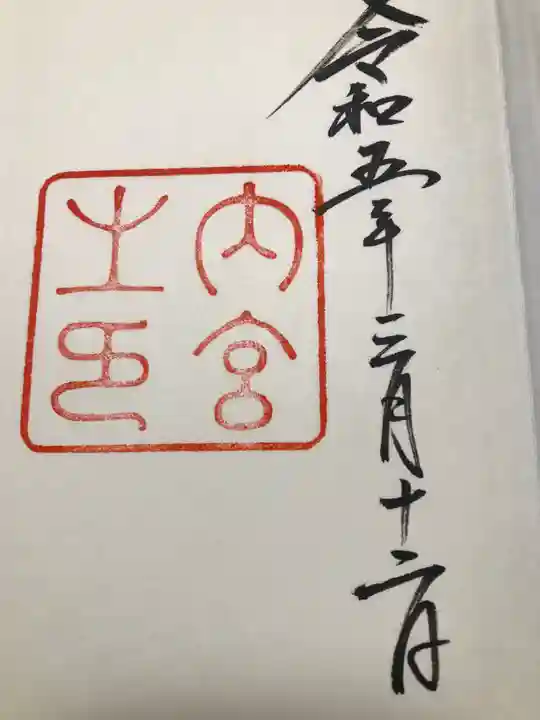 令和五年三月十二日
内宮
之印